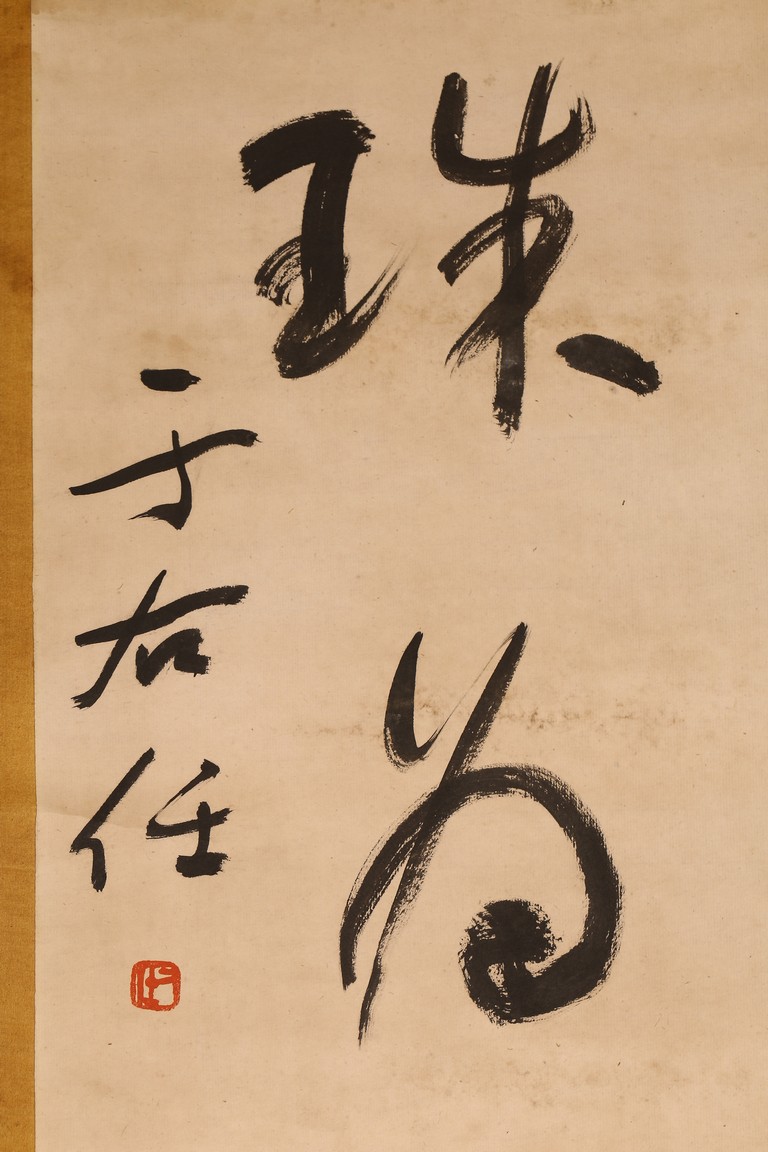 珠為
于右任